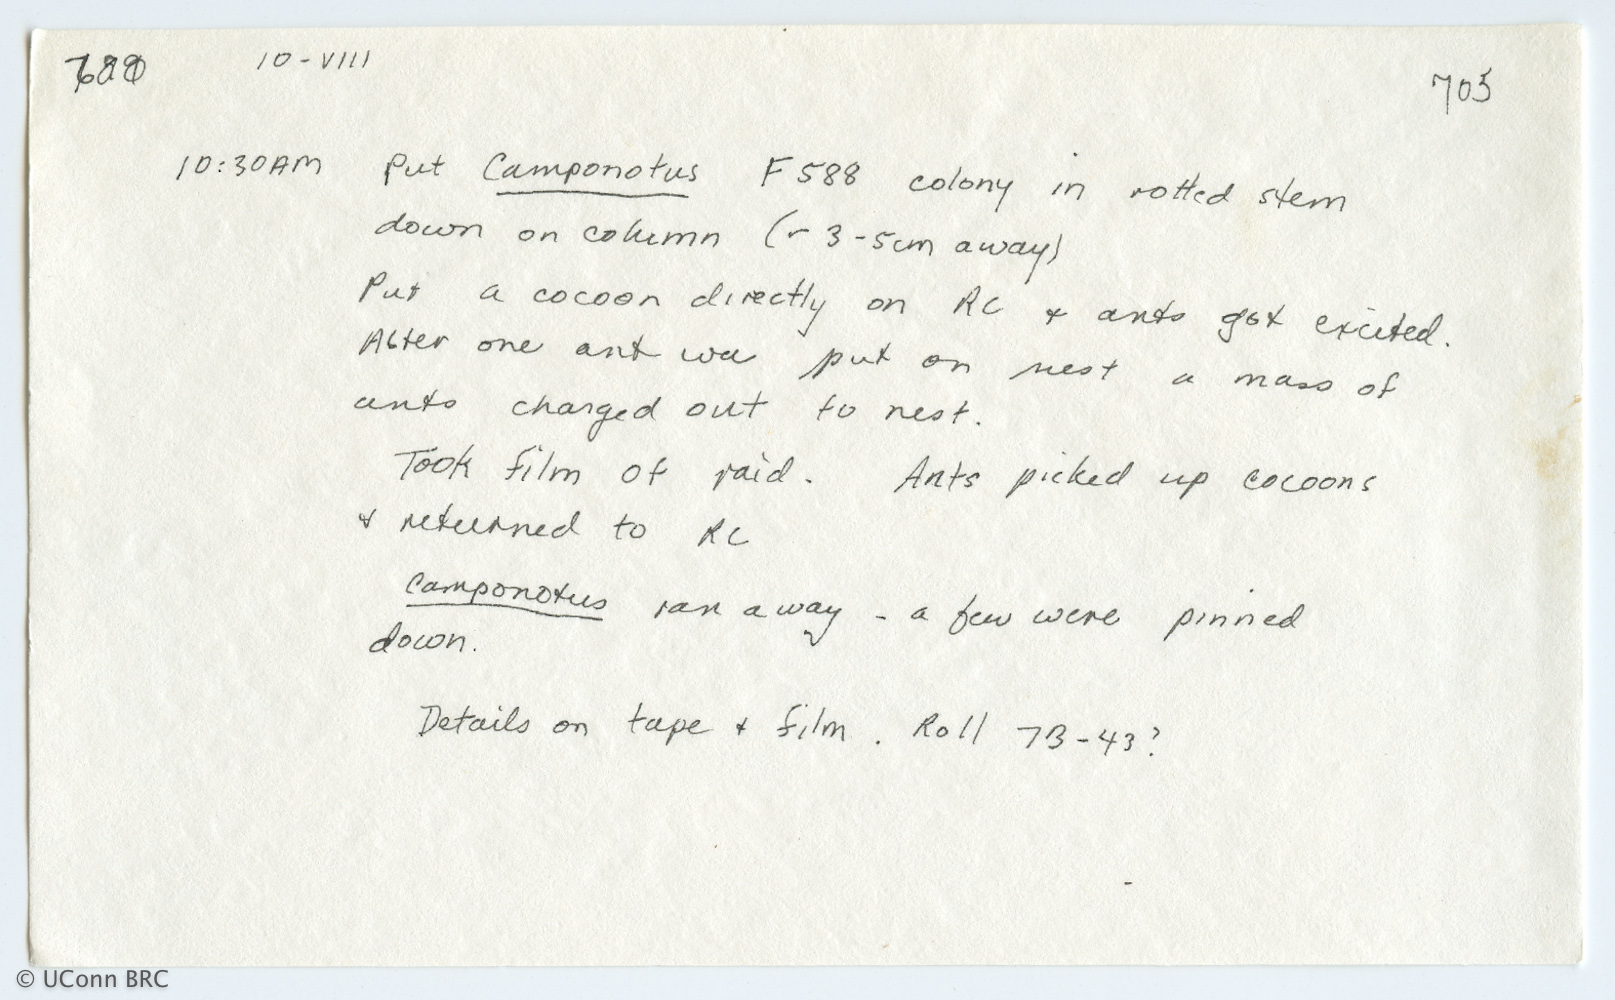 10-VIII
705
10:30AM Put Camponotus F588 colony in rotted stem
down on column (~ 3-5cm away)
Put a cocoon directly on RC & ants got excited.
After one ant wa put on nest a mass of
ants charged out to nest.
Took film of raid. Ants picked up cocoons
& returned to RC
Camponotus ran away - a few were pinned
down.
Details on tape & film. Roll 7B-43?
© UConn BRC